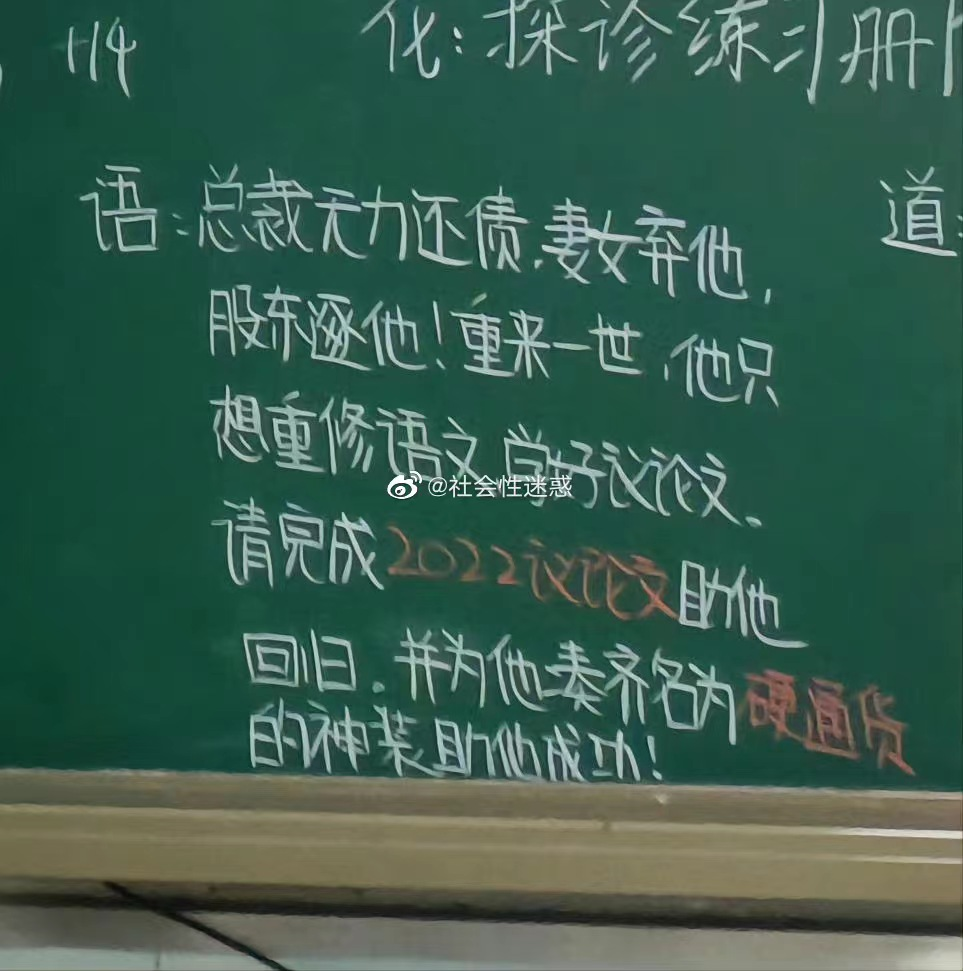 114
化:探诊练习册
语:总裁无力还债.妻女弃他,
道:
股东逐他!重来一世,他只
想重修语文,学好议论文.
@社会性迷惑
请完成2022议论文助他
回归.并为他凑齐名为硬通货
的神装助他成功!